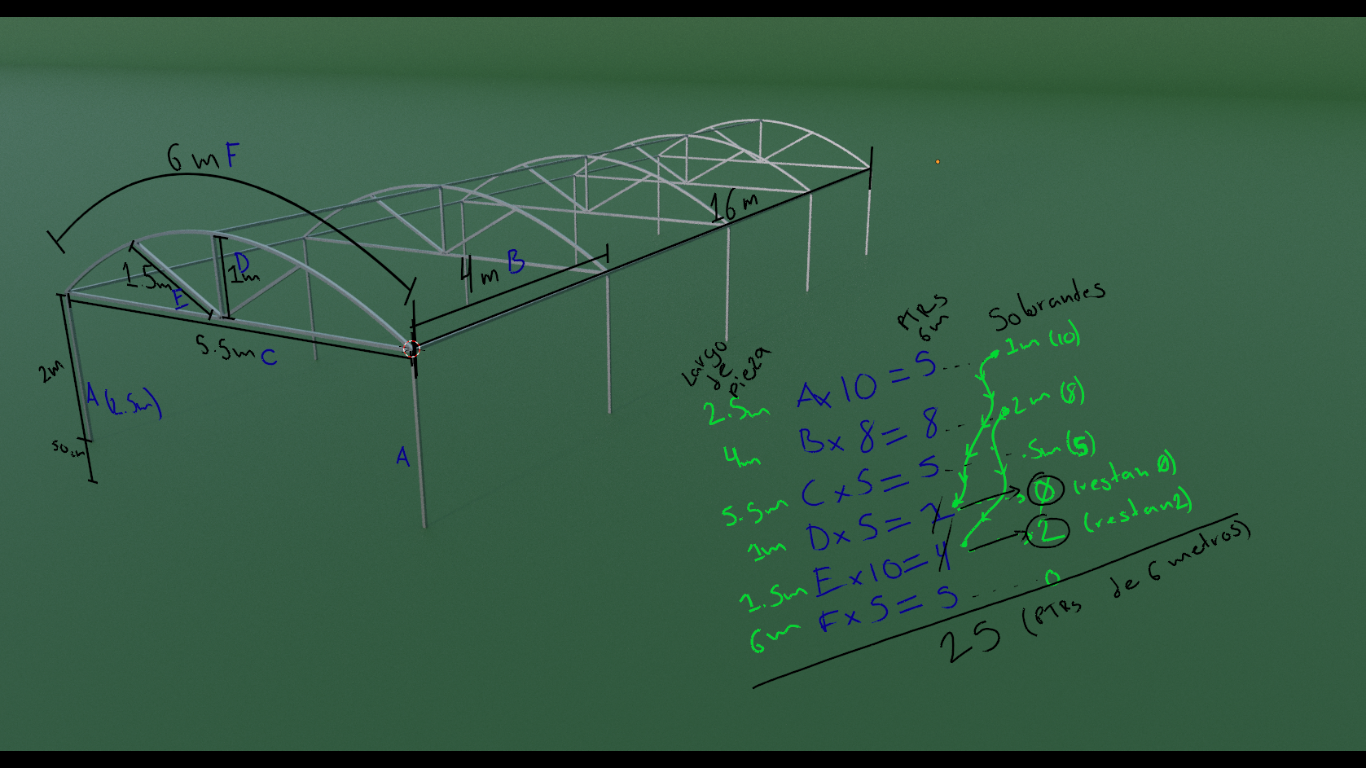 6 m F
16 m
1.5m
D
1m
E
4 m B
5.5m C
2m
A (2.5m)
50cm
A
Largo de pieza
PTRs 6m
Sobrandes
2.5m A x 10 = 5 ... 1m (10)
4m B x 8 = 8 ... 2m (8)
5.5m C x 5 = 5 ... .5m (5)
1m D x 5 = 1 0 (restan 0)
1.5m E x 10 = 4 2 (restan 2)
6m F x 5 = 5 ... 0
25 (PTRs de 6 metros)